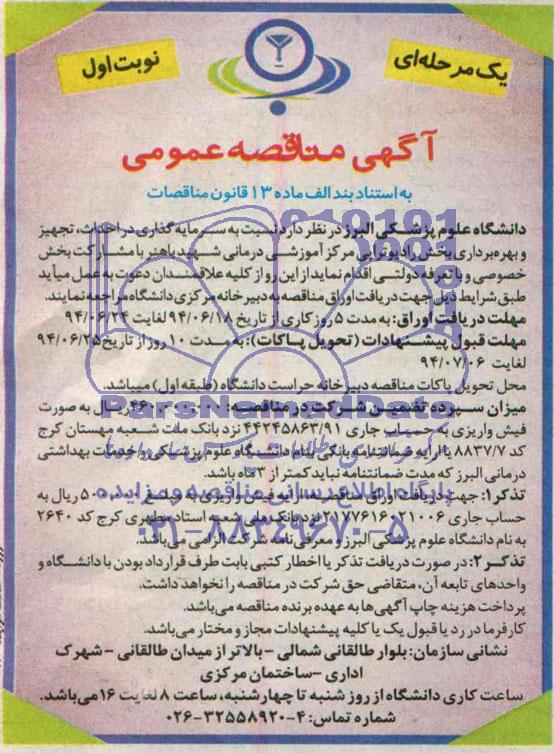 یک مرحله‌ای
نوبت اول
آگهی مناقصه عمومی
به استناد بند الف ماده ۱۳ قانون مناقصات
دانشگاه علوم پزشکی البرز در نظر دارد نسبت به سرمایه گذاری در احداث، تجهیز
و بهره‌برداری بخش رادیوتراپی مرکز آموزشی درمانی شهید باهنر با مشارکت بخش
خصوصی و با تعرفه دولتی اقدام نماید از این رو از کلیه علاقمندان دعوت به عمل میآید
طبق شرایط ذیل جهت دریافت اوراق مناقصه به دبیرخانه مرکزی دانشگاه مراجعه نمایند.
مهلت دریافت اوراق: به مدت ۵ روز کاری از تاریخ ۹۴/۰۶/۱۸ لغایت ۹۴/۰۶/۲۴
مهلت قبول پیشنهادات (تحویل پاکات): به مدت ۱۰ روز از تاریخ ۹۴/۰۶/۲۵
لغایت ۹۴/۰۷/۰۶
محل تحویل پاکات مناقصه دبیرخانه حراست دانشگاه (طبقه اول) میباشد.
میزان سپرده تضمین شرکت در مناقصه: ریال به صورت
فیش واریزی به حساب جاری ۴۴۲۴۵۸۶۳/۹۱ نزد بانک ملت شعبه مهستان کرج
کد ۸۸۳۷/۷ یا ارایه ضمانتنامه بانکی بنام دانشگاه علوم پزشکی و خدمات بهداشتی
درمانی البرز که مدت ضمانتنامه نباید کمتر از ۳ ماه باشد.
تذکر۱: جهت دریافت اوراق مناقصه ارایه فیش واریزی به مبلغ ۵۰۰،۰۰۰ ریال به
حساب جاری ۲۱۷۷۶۱۶۰۲۱۰۰۶ نزد بانک ملی شعبه استاد مطهری کرج کد ۲۶۴۰
به نام دانشگاه علوم پزشکی البرز و معرفی نامه شرکت الزامی می‌باشد.
تذکر۲: در صورت دریافت تذکر یا اخطار کتبی بابت طرف قرارداد بودن با دانشگاه و
واحدهای تابعه آن، متقاضی حق شرکت در مناقصه را نخواهد داشت.
پرداخت هزینه چاپ آگهی‌ها به عهده برنده مناقصه می‌باشد.
کارفرما در رد یا قبول یک یا کلیه پیشنهادات مجاز و مختار می‌باشد.
نشانی سازمان: بلوار طالقانی شمالی - بالاتر از میدان طالقانی - شهرک
اداری - ساختمان مرکزی
ساعت کاری دانشگاه از روز شنبه تا چهارشنبه، ساعت ۸ لغایت ۱۶ می‌باشد.
شماره تماس: ۴-۳۲۵۵۸۹۲۰-۰۲۶
ParsNamadData
پایگاه اطلاع رسانی مناقصه و مزایده
۰۲۱-۸۸۳۴۹۶۷۰-۵